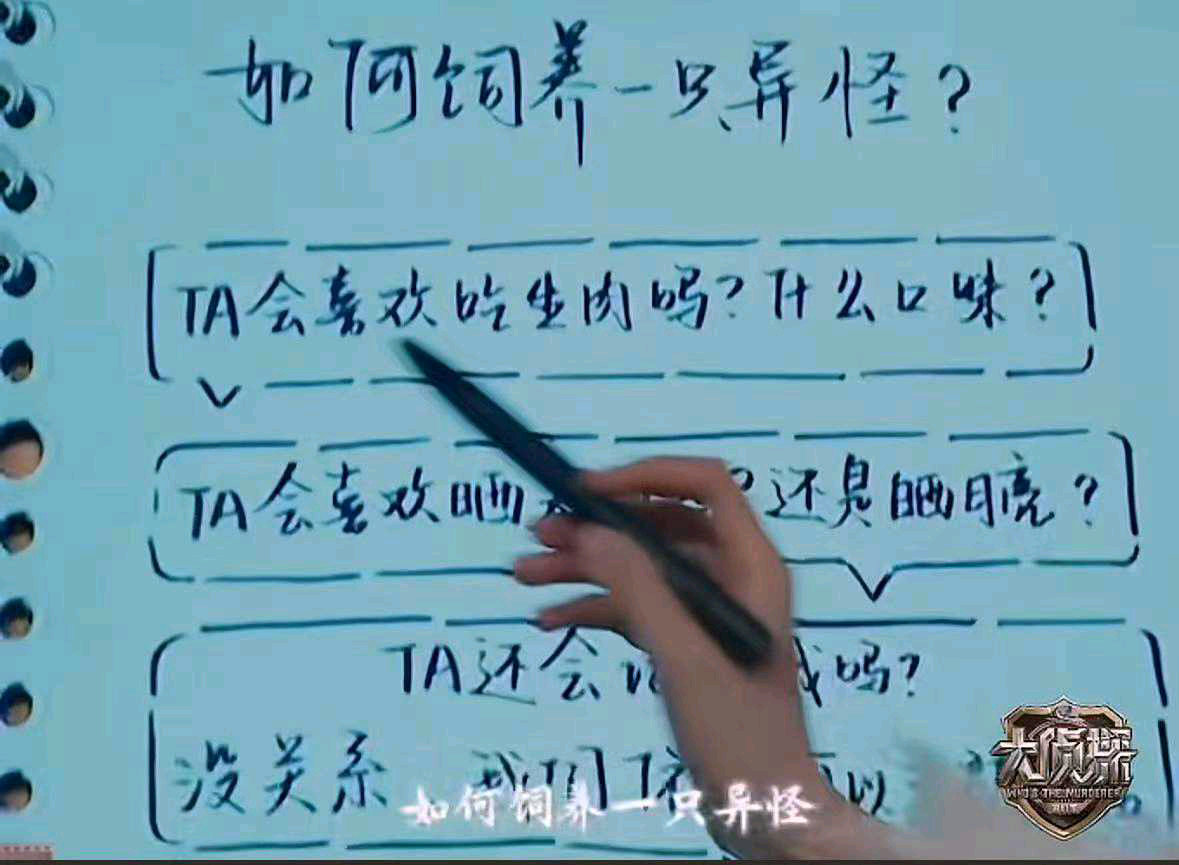 如何饲养一只异怪?
TA会喜欢吃生肉吗?什么口味?
TA会喜欢晒?还是晒月亮?
TA还会我吗?
没关系 我们以
如何饲养一只异怪
大侦探
WHO'S THE MURDERER